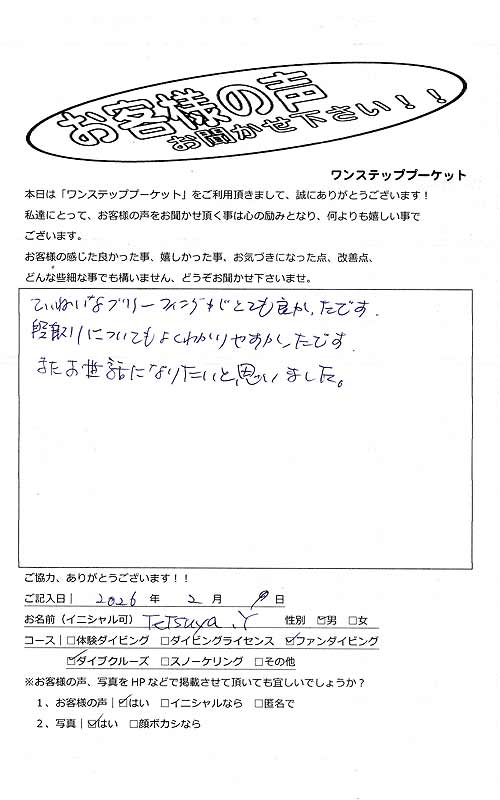 お客様の声
お聞かせ下さい！！
ワンステッププーケット
本日は「ワンステッププーケット」をご利用頂きまして、誠にありがとうございます！
私達にとって、お客様の声をお聞かせ頂く事は心の励みとなり、何よりも嬉しい事で
ございます。
お客様の感じた良かった事、嬉しかった事、お気づきになった点、改善点、
どんな些細な事でも構いません、どうぞお聞かせ下さいませ。
ていねいなブリーフィングがとても良かったです.
段取りについてもよくわかりやすかったです.
またお世話になりたいと思いました。
ご協力、ありがとうございます！！
ご記入日｜ 2026 年 2 月 9 日
お名前（イニシャル可） Tetsuya .Y 性別 ☑男 □女
コース｜□体験ダイビング □ダイビングライセンス ☑ファンダイビング
☑ダイブクルーズ □スノーケリング □その他
※お客様の声、写真を HP などで掲載させて頂いても宜しいでしょうか？
1、お客様の声｜☑はい □イニシャルなら □匿名で
2、写真｜☑はい □顔ボカシなら